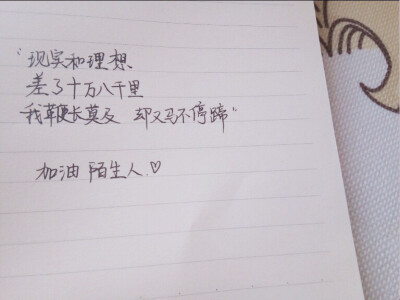 “现实和理想
差了十万八千里
我鞭长莫及 却又马不停蹄”
加油 陌生人.♡